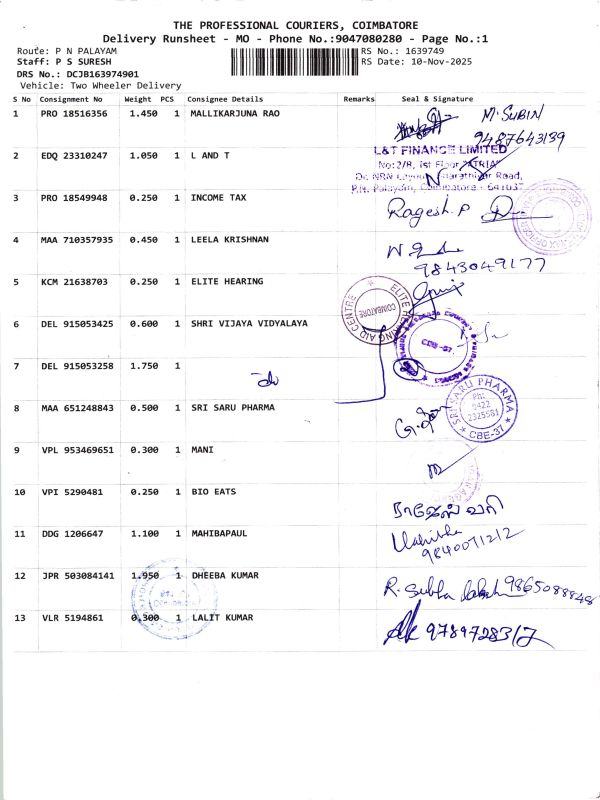 THE PROFESSIONAL COURIERS, COIMBATORE
Delivery Runsheet - MO - Phone No.:9047080280 - Page No.:1
Route: P N PALAYAM
RS No.: 1639749
Staff: P S SURESH
RS Date: 10-Nov-2025
DRS No.: DCJB163974901
Vehicle: Two Wheeler Delivery
S No Consignment No Weight PCS Consignee Details Remarks Seal & Signature
1 PRO 18516356 1.450 1 MALLIKARJUNA RAO M. SUBIN
9487643139
2 EDQ 23310247 1.050 1 L AND T
L&T FINANCE LIMITED
No:2/8, Ist Floor "ATRIA"
Road,
P.N. Palayam, Coimbatore - 641037
3 PRO 18549948 0.250 1 INCOME TAX
Ragesh.P
4 MAA 710357935 0.450 1 LEELA KRISHNAN
9843049177
5 KCM 21638703 0.250 1 ELITE HEARING
ELITE HEARING AID CENTRE
COIMBATORE
6 DEL 915053425 0.600 1 SHRI VIJAYA VIDYALAYA
CBE-37.
7 DEL 915053258 1.750 1
do
8 MAA 651248843 0.500 1 SRI SARU PHARMA
SRI SARU PHARMA
Ph:
0422
2325581
CBE-37
9 VPL 953469651 0.300 1 MANI
10 VPI 5290481 0.250 1 BIO EATS
11 DDG 1206647 1.100 1 MAHIBAPAUL
9840071212
12 JPR 503084141 1.950 1 DHEEBA KUMAR
R. Subha 9865088848
13 VLR 5194861 0.300 1 LALIT KUMAR
9789728317